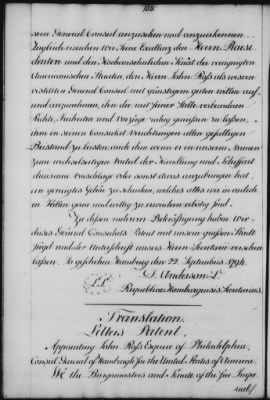 158
sein General Consul anzusehen und anzuerkennen.
Zugleich ersuchen wir Seine Excellenz den Herrn Präsi-
denten und den Hochansehnlichen Senat der vereinigten
Americanischen Staaten, den Herrn John Roß als unsern
bestellten General Consul mit günstigem guten willen auf
und anzunehmen, ihn die mit seiner Stelle verbundenen
Rechte, Freiheiten und Vorzüge ruhig genießen zu laßen,
ihm in seinen Consulat Verrichtungen allen gefälligen
Beistand zu leisten, auch ihm wenn er in unserm Namen
zum wechselseitigen Vorteil der Handlung und Schiffart
diensame Vorschläge oder sonst etwas anzubringen hat
ein geneigtes Gehör zu schenken, welches alles wir in ähnlich
en Fällen gern und willig zu erwiedern erbötig sind.
Zu deßen mehrern Bekräftigung haben Wir
dieses General Consulats Patent mit unserm großen Stadt
siegel und der Unterschrift unsers Herrn Secretarii versehen
laßen. So geschehen Hamburg den 22. Septembris 1794.
D. Anderson L.
L.S. Republicæ Hamburgensis Secretarius.
Translation.
Letters Patent.
Appointing John Roß Esquire of Philadelphia,
Consul General of Hamburgh for the United States of America.
We the Burgomasters and Senate of the free Impe
rial/